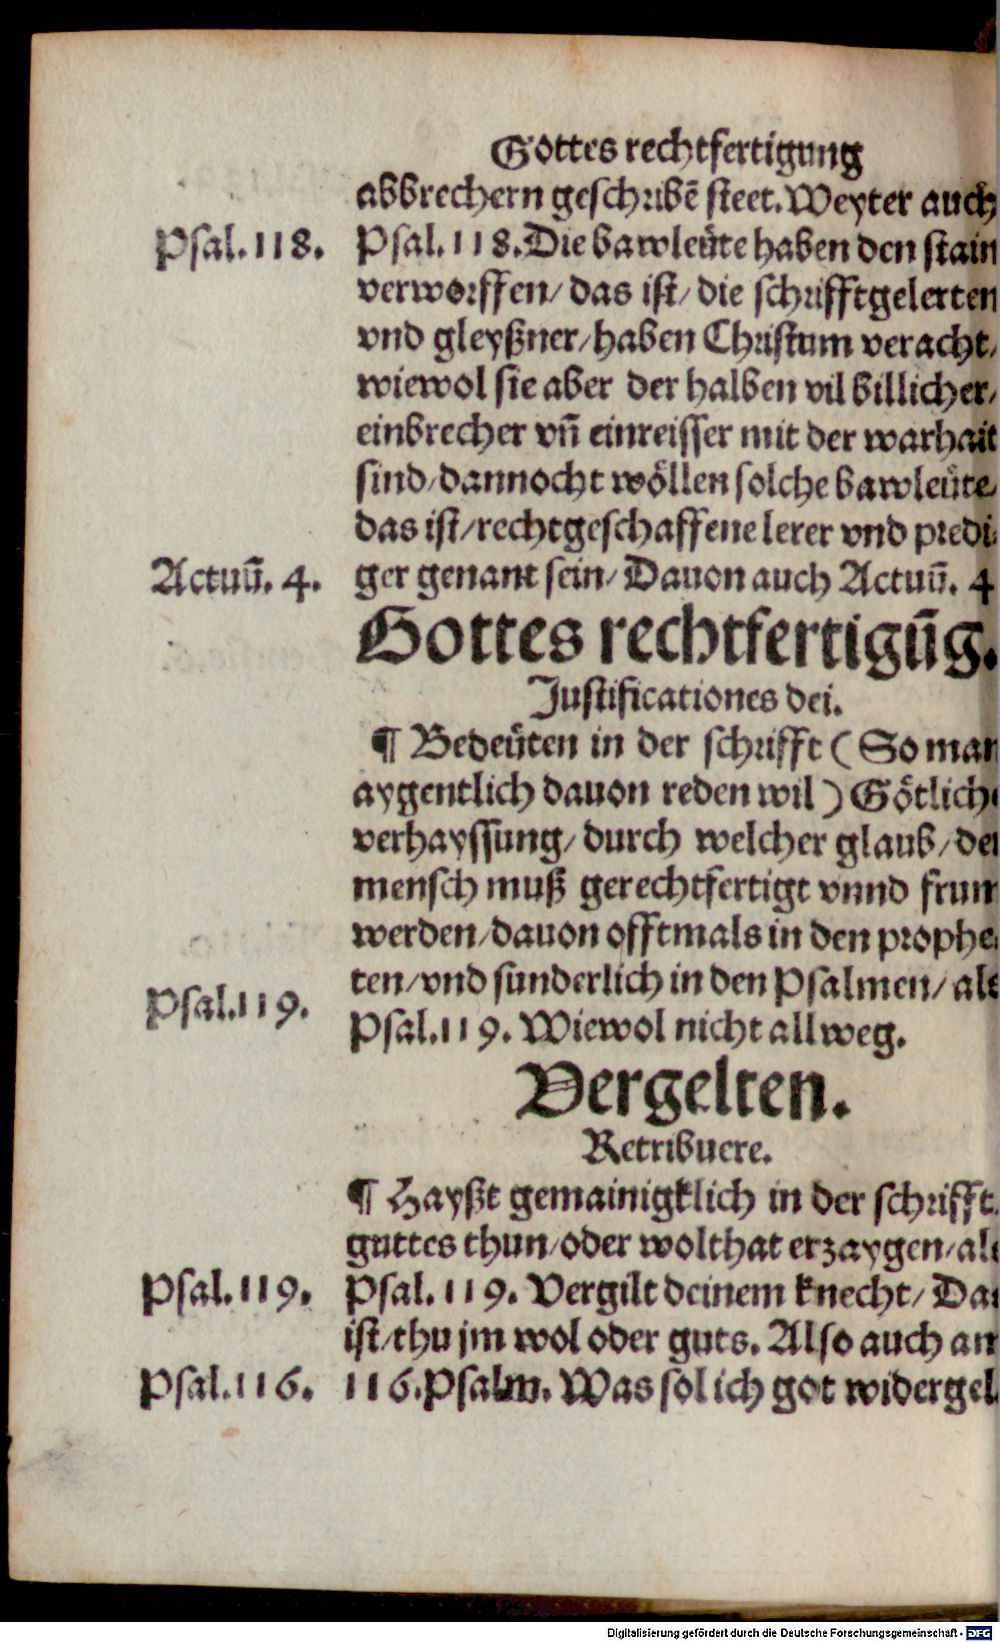 Gottes rechtfertigung
abbrechern geschribē steet. Weyter auch
Psal. 118.
Psal. 118. Die bawleüte haben den stain
verworffen/ das ist/ die schrifftgelerten
vnd gleyßner/ haben Christum veracht/
wiewol sie aber der halben vil billicher/
einbrecher vñ einreisser mit der warhait
sind/ dannocht wöllen solche bawleüte/
das ist/ rechtgeschaffene lerer vnd predi
Actuū. 4.
ger genant sein/ Dauon auch Actuū. 4
Gottes rechtfertigūg.
Justificationes dei.
¶ Bedeüten in der schrifft ( So man
aygentlich dauon reden wil ) Götlich
verhayssung/ durch welcher glaub/ de
mensch muß gerechtfertigt vnnd frum
werden/ dauon offtmals in den prophe
ten/ vnd sunderlich in den Psalmen/ als
Psal. 119.
Psal. 119. Wiewol nicht allweg.
Vergelten.
Retribuere.
¶ Hayßt gemainigklich in der schrifft
guttes thun/ oder wolthat erzaygen/ als
Psal. 119.
Psal. 119. Vergilt deinem knecht/ Das
ist/ thu jm wol oder guts. Also auch am
Psal. 116.
116. Psalm. Was sol ich got widergel
Digitalisierung gefördert durch die Deutsche Forschungsgemeinschaft - DFG